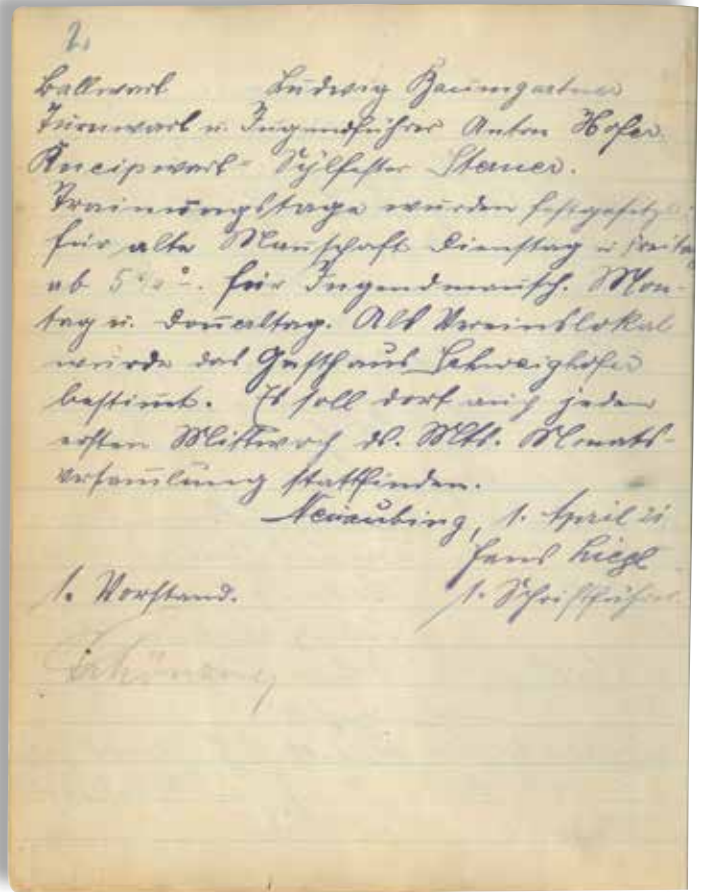 2.
Ballwart Ludwig Baumgartner
Turnwart u. Jugendführer Anton Hofer.
Kneipwart - Sylfester Steuer.
Trainingstage wurden festgesetzt:
für alte Manschaft Dienstag u. Freitag
ab 5 für Jugendmansch. Mon-
tag u. Donerstag. Als Vereinslokal
wurde das Gasthaus Schweighofer
bestimt. Es soll dort auch jeden
ersten Mittwoch ds. Mts. Monats-
versamlung stattfinden.
Neuaubing, 1. April 21
Hans Liegl
1. Vorstand. 1. Schriftführer.